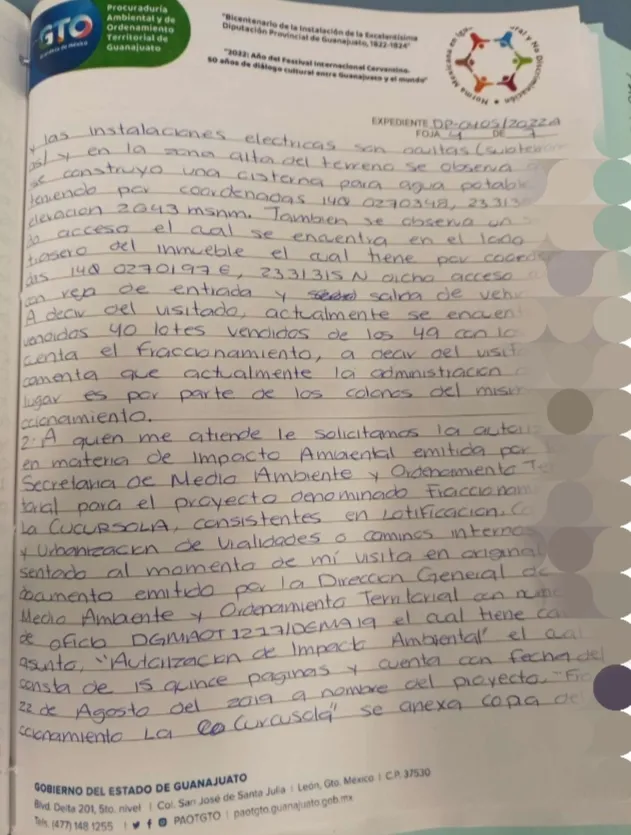 GTO
Grandeza de México
Procuraduría
Ambiental y de
Ordenamiento
Territorial de
Guanajuato
"Bicentenario de la Instalación de la Excelentísima
Diputación Provincial de Guanajuato, 1822-1824"
"2022: Año del Festival Internacional Cervantino,
50 años de diálogo cultural entre Guanajuato y el mundo"
Norma Mexicana en Ig ral y No Discriminación
EXPEDIENTE DP-0405/2022A
FOJA 4 DE 7
y las instalaciones electricas son ocultas (subterran
as) y en la zona alta del terreno se observa
se construyo una cisterna para agua potabl
teniendo por coordenadas 14Q 0270348, 23313
elevacion 2043 msnm. Tambien se observa un s
do acceso el cual se encuentra en el lado
trasero del inmueble el cual tiene por coord
das 14Q 0270197 E, 2331315 N dicho acceso
con reja de entrada y salida de vehi
A decir del visitado, actualmente se encuent
vendidos 40 lotes vendidos de los 49 con lo
cuenta el fraccionamiento, a decir del visit
comenta que actualmente la administracion
lugar es por parte de los colonos del mism
ccionamiento.
2.- A quien me atiende le solicitamos la autori
en materia de Impacto Ambiental emitida por
Secretaria de Medio Ambiente y Ordenamiento Te
torial para el proyecto denominado Fraccionam
La CUCURSOLA, consistentes en Lotificacion, Co
y Urbanizacion de Vialidades o caminos internos
sentado al momento de mi visita en original
documento emitido por la Direccion General de
Medio Ambiente y Ordenamiento Territorial con nume
de oficio DGMAOT 1277/DEMA19 el cual tiene co
asunto, "Autorizacion de Impacto Ambiental" el cual
consta de 15 quince paginas y cuenta con fecha del
22 de Agosto del 2019 a nombre del proyecto. "Fra
ccionamiento La Curcusola" se anexa copia de
GOBIERNO DEL ESTADO DE GUANAJUATO
Blvd. Delta 201, 5to. nivel | Col. San José de Santa Julia | León, Gto. México | C.P. 37530
Tels. (477) 148 1255 | PAOTGTO | paotgto.guanajuato.gob.mx